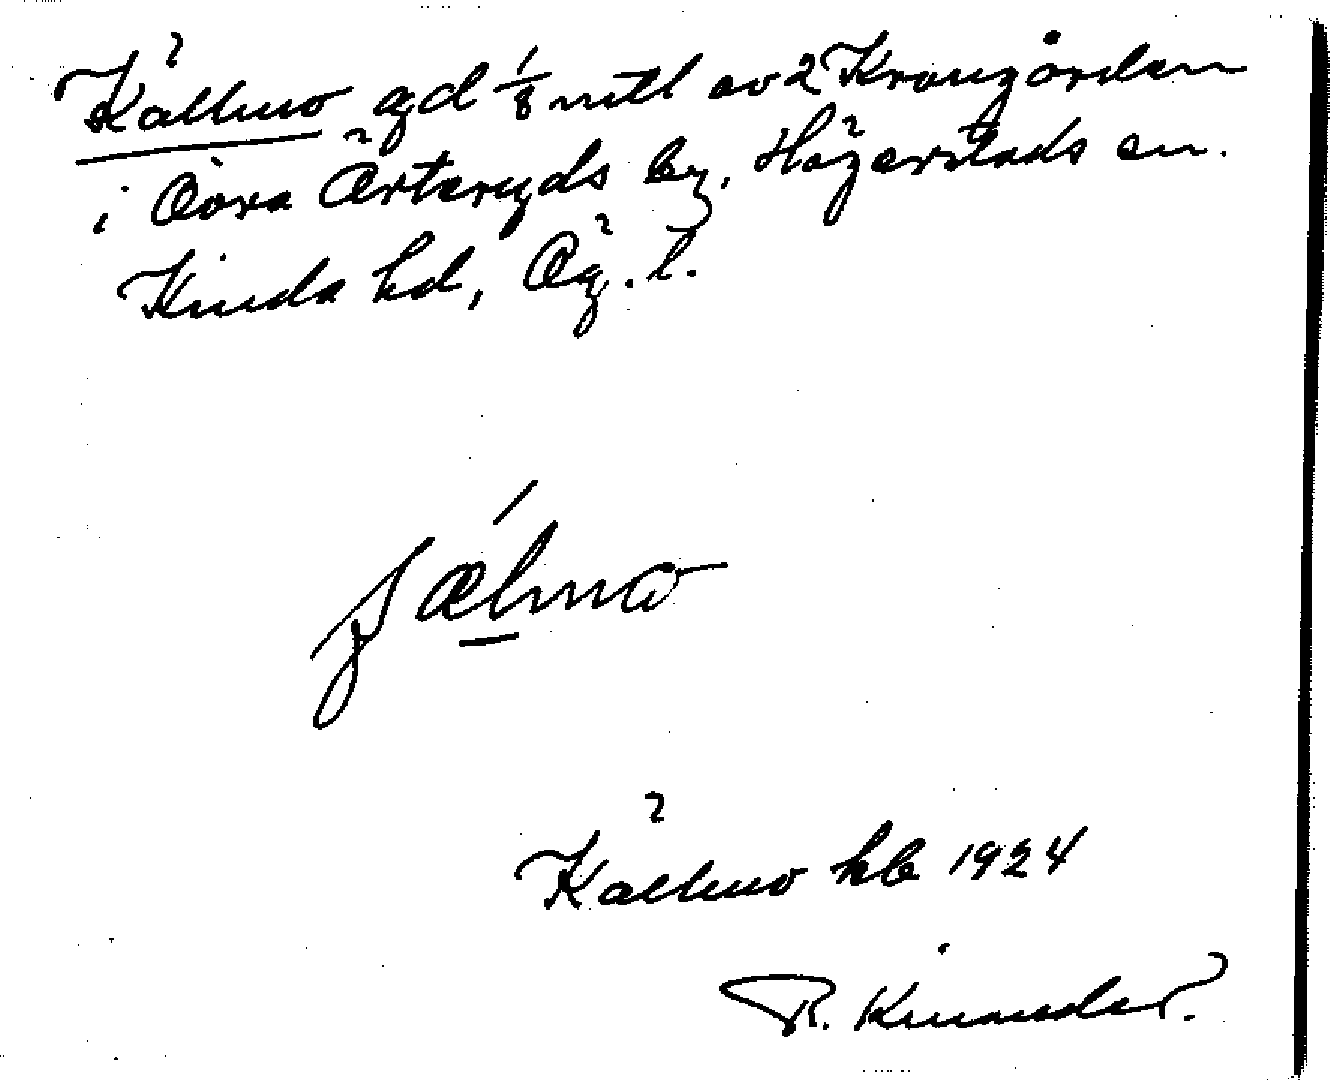 Källmo gd 1/8 mtl av 2 Krongården
i Övra Ärteryds by, Hägerstads sn.
Kinda hd, Ög. l.
Källmo kb 1924
R. Kinander.